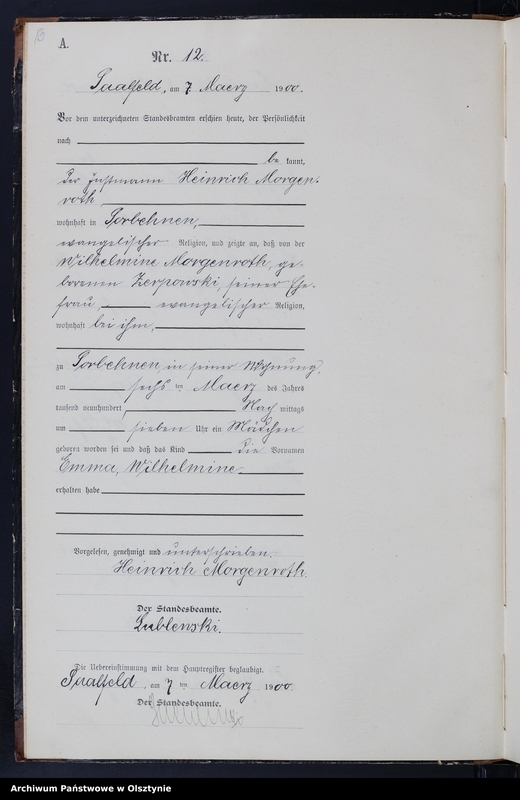 13
A.
Nr. 12.
Saalfeld, am 7 Maerz 1900.
Vor dem unterzeichneten Standesbeamten erschien heute, der Persönlichkeit
nach
be kannt,
der Instmann Heinrich Morgen-
roth
wohnhaft in Sorbehnen,
evangelischer Religion, und zeigte an, daß von der
Wilhelmine Morgenroth, ge-
borenen Zierpowski, seiner Ehe-
frau, evangelischer Religion,
wohnhaft bei ihm,
zu Sorbehnen, in seiner Wohnung,
am sechs ten Maerz des Jahres
tausend neunhundert, Nach mittags
um sieben Uhr ein Mädchen
geboren worden sei und daß das Kind die Vornamen
Emma, Wilhelmine
erhalten habe
Vorgelesen, genehmigt und unterschrieben.
Heinrich Morgenroth.
Der Standesbeamte.
Lublenski.
Die Uebereinstimmung mit dem Hauptregister beglaubigt.
Saalfeld, am 7 ten Maerz 1900
Der Standesbeamte.
Archiwum Państwowe w Olsztynie